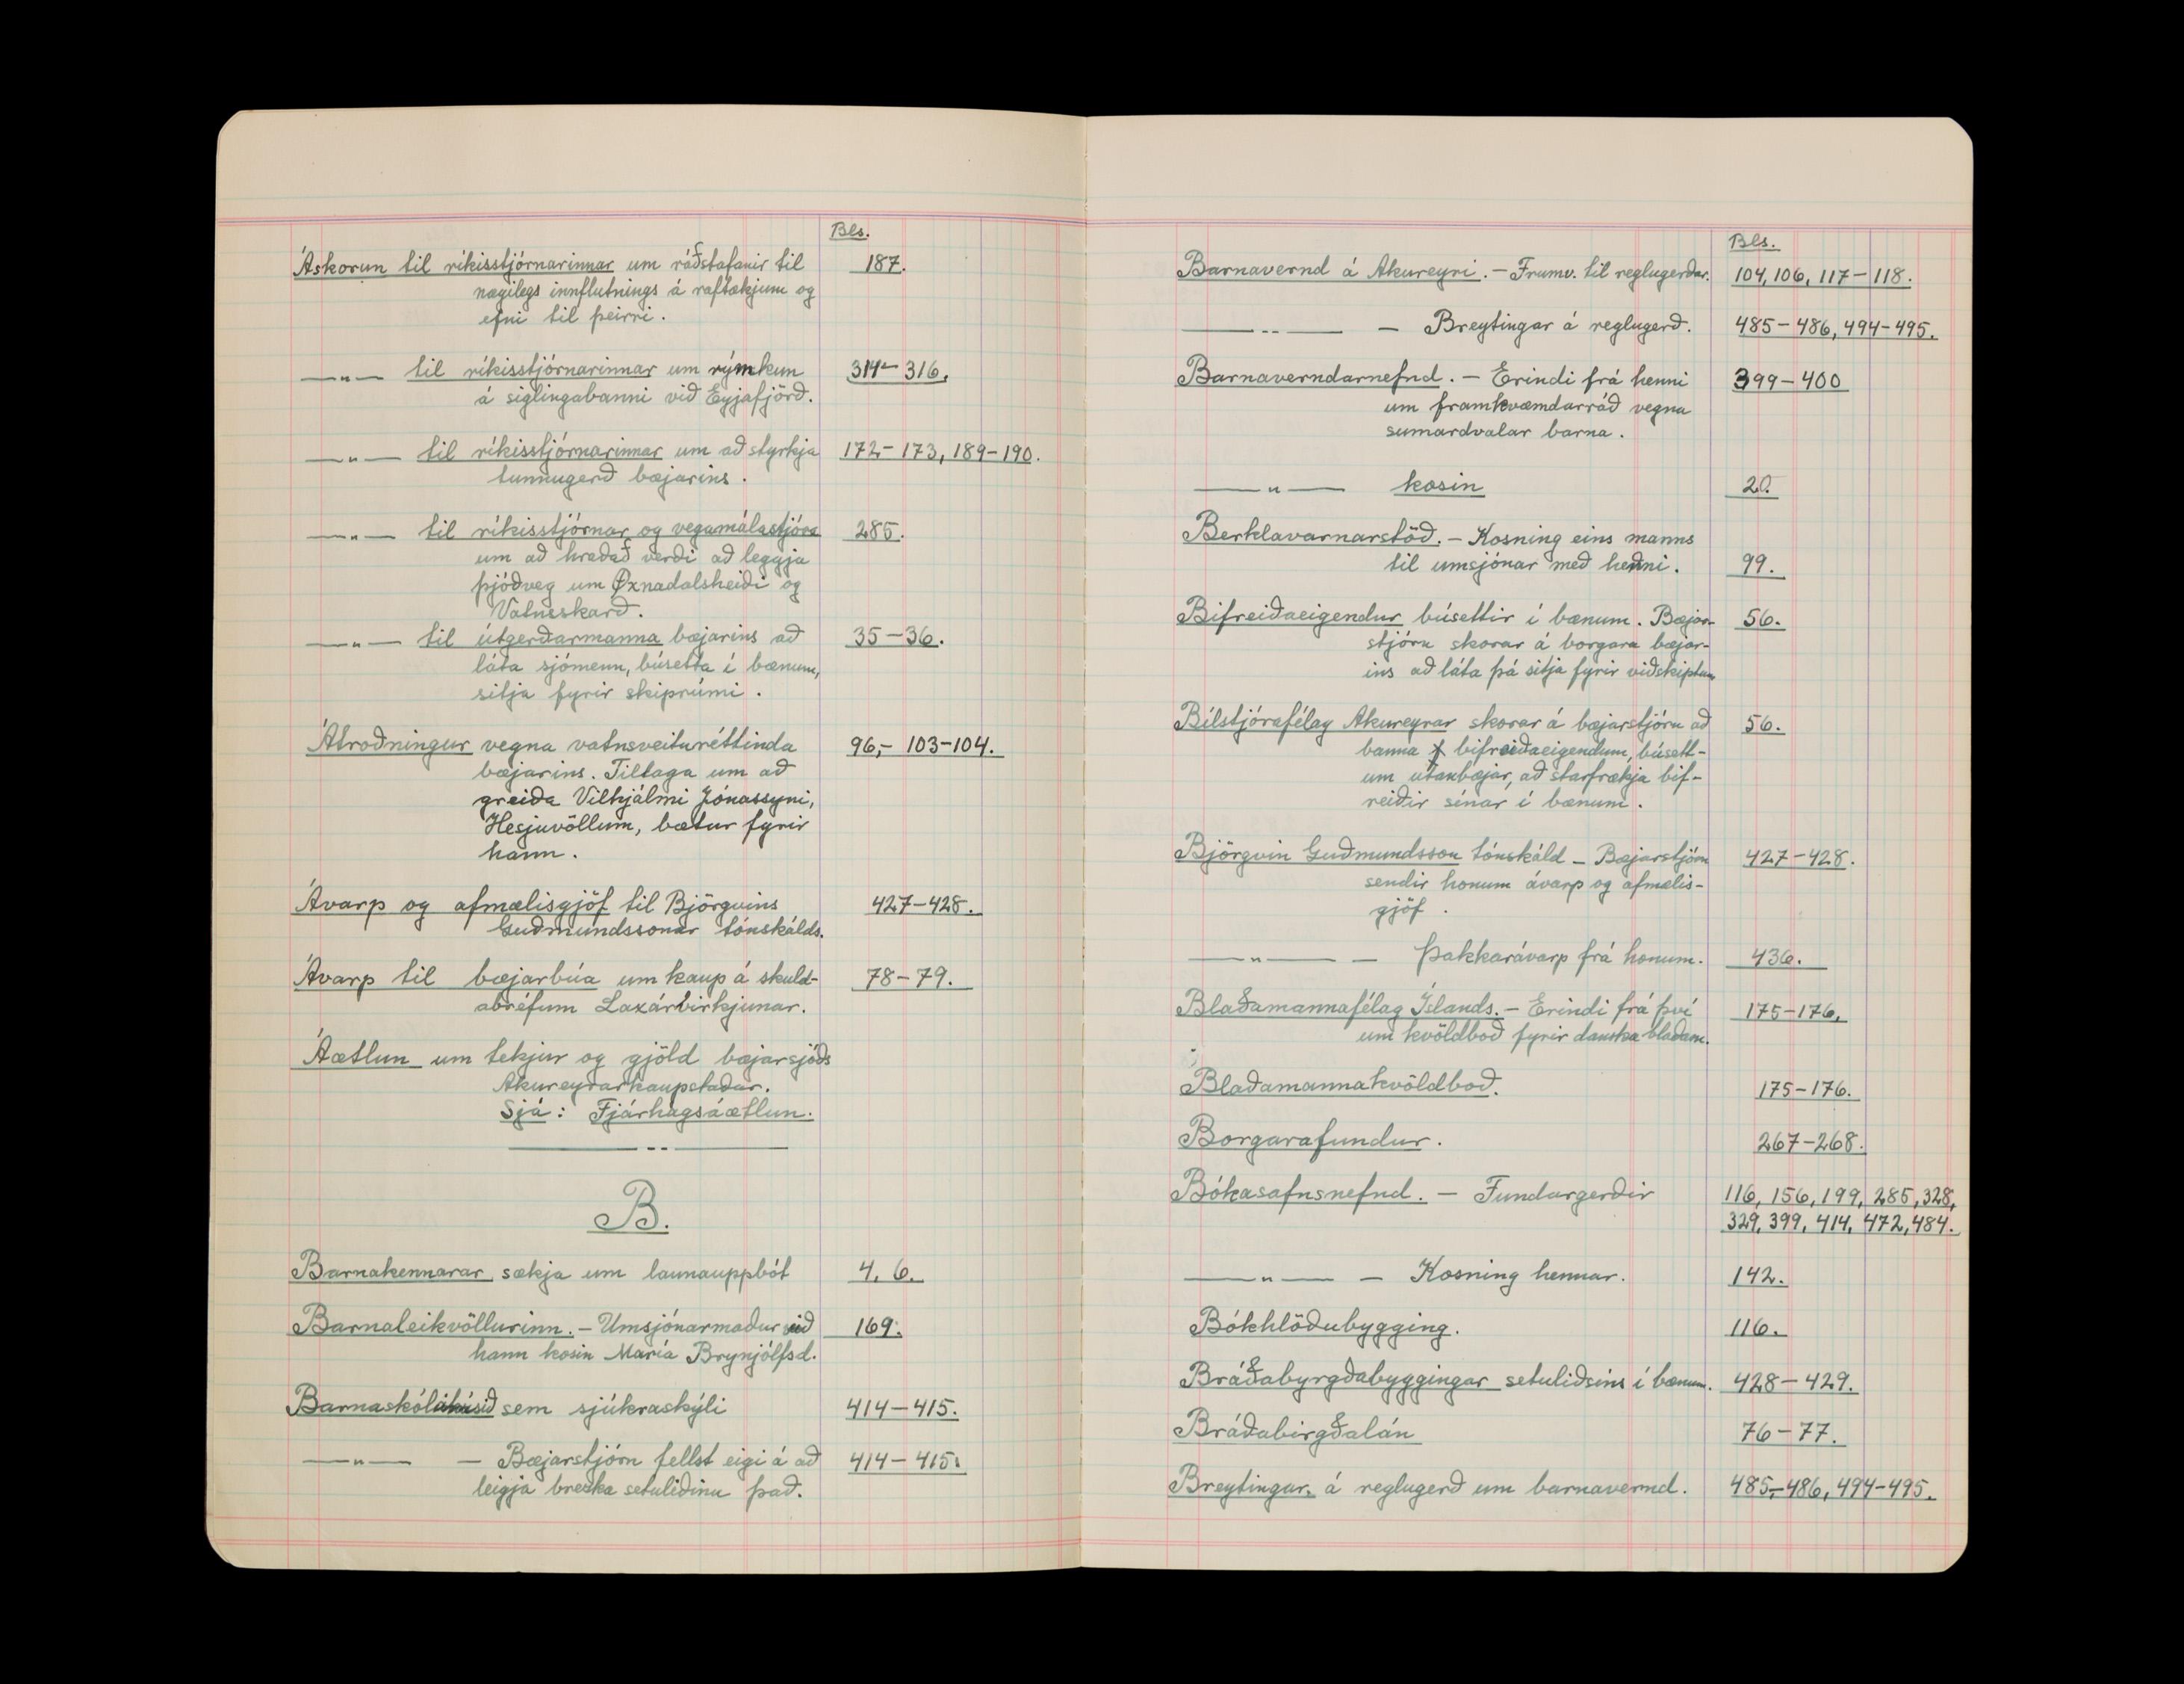 Bls.
Áskorun til ríkisstjórnarinnar um ráðstafanir til 187.
nægilegs innflutnings á raftækjum og
efni til þeirri.
—〃— til ríkisstjórnarinnar um rýmkun 314–316.
á siglingabanni við Eyjafjörð.
—〃— til ríkisstjórnarinnar um að styrkja 172–173, 189–190.
tunnugerð bæjarins.
—〃— til ríkisstjórnar og vegamálastjóra 285.
um að hraðað verði að leggja
þjóðveg um Øxnadalsheiði og
Vatnsskarð.
—〃— til útgerðarmanna bæjarins að 35–36.
láta sjómenn, búsetta í bænum,
sitja fyrir skiprúmi.
Átroðningur vegna vatnsveituréttinda 96,– 103–104.
bæjarins. Tillaga um að
greiða Vilhjálmi Jónassyni,
Hesjuvöllum, bætur fyrir
hann.
Ávarp og afmælisgjöf til Björgvins 427–428.
Guðmundssonar tónskálds.
Ávarp til bæjarbúa um kaup á skuld- 78–79.
abréfum Laxárvirkjunar.
Áætlun um tekjur og gjöld bæjarsjóðs
Akureyrarkaupstaðar.
Sjá: Fjárhagsáætlun.
B.
Barnakennarar sækja um launauppbót 4, 6.
Barnaleikvöllurinn. – Umsjónarmaður við 169.
hann kosin María Brynjólfsd.
Barnaskólahúsið sem sjúkraskýli 414–415.
—〃— – Bæjarstjórn fellst eigi á að 414–415.
leigja brezka setuliðinu það.
Bls.
Barnavernd á Akureyri. – Frumv. til reglugerðar. 104, 106, 117–118.
—〃— – Breytingar á reglugerð. 485–486, 494–495.
Barnaverndarnefnd. – Erindi frá henni 399–400
um framkvæmdarráð vegna
sumardvalar barna.
—〃— kosin 20.
Berklavarnarstöð. – Kosning eins manns
til umsjónar með henni. 99.
Bifreiðaeigendur búsettir í bænum. Bæjar- 56.
stjórn skorar á borgara bæjar-
ins að láta þá sitja fyrir viðskiptum
Bílstjórafélag Akureyrar skorar á bæjarstjórn að 56.
banna bifreiðaeigendum, búsett-
um utanbæjar, að starfrækja bif-
reiðir sínar í bænum.
Björgvin Guðmundsson tónskáld – Bæjarstjórn 427–428.
sendir honum ávarp og afmælis-
gjöf.
—〃— – Þakkarávarp frá honum. 436.
Blaðamannafélag Íslands. – Erindi frá því 175–176.
um kvöldboð fyrir danska blaðam.
Blaðamannakvöldboð. 175–176.
Borgarafundur. 267–268.
Bókasafnsnefnd. – Fundargerðir 116, 156, 199, 285, 328,
329, 399, 414, 472, 484.
—〃— – Kosning hennar. 142.
Bókhlöðubygging. 116.
Bráðabyrgðabyggingar setuliðsins í bænum. 428–429.
Bráðabirgðalán 76–77.
Breytingar á reglugerð um barnavernd. 485–486, 494–495.